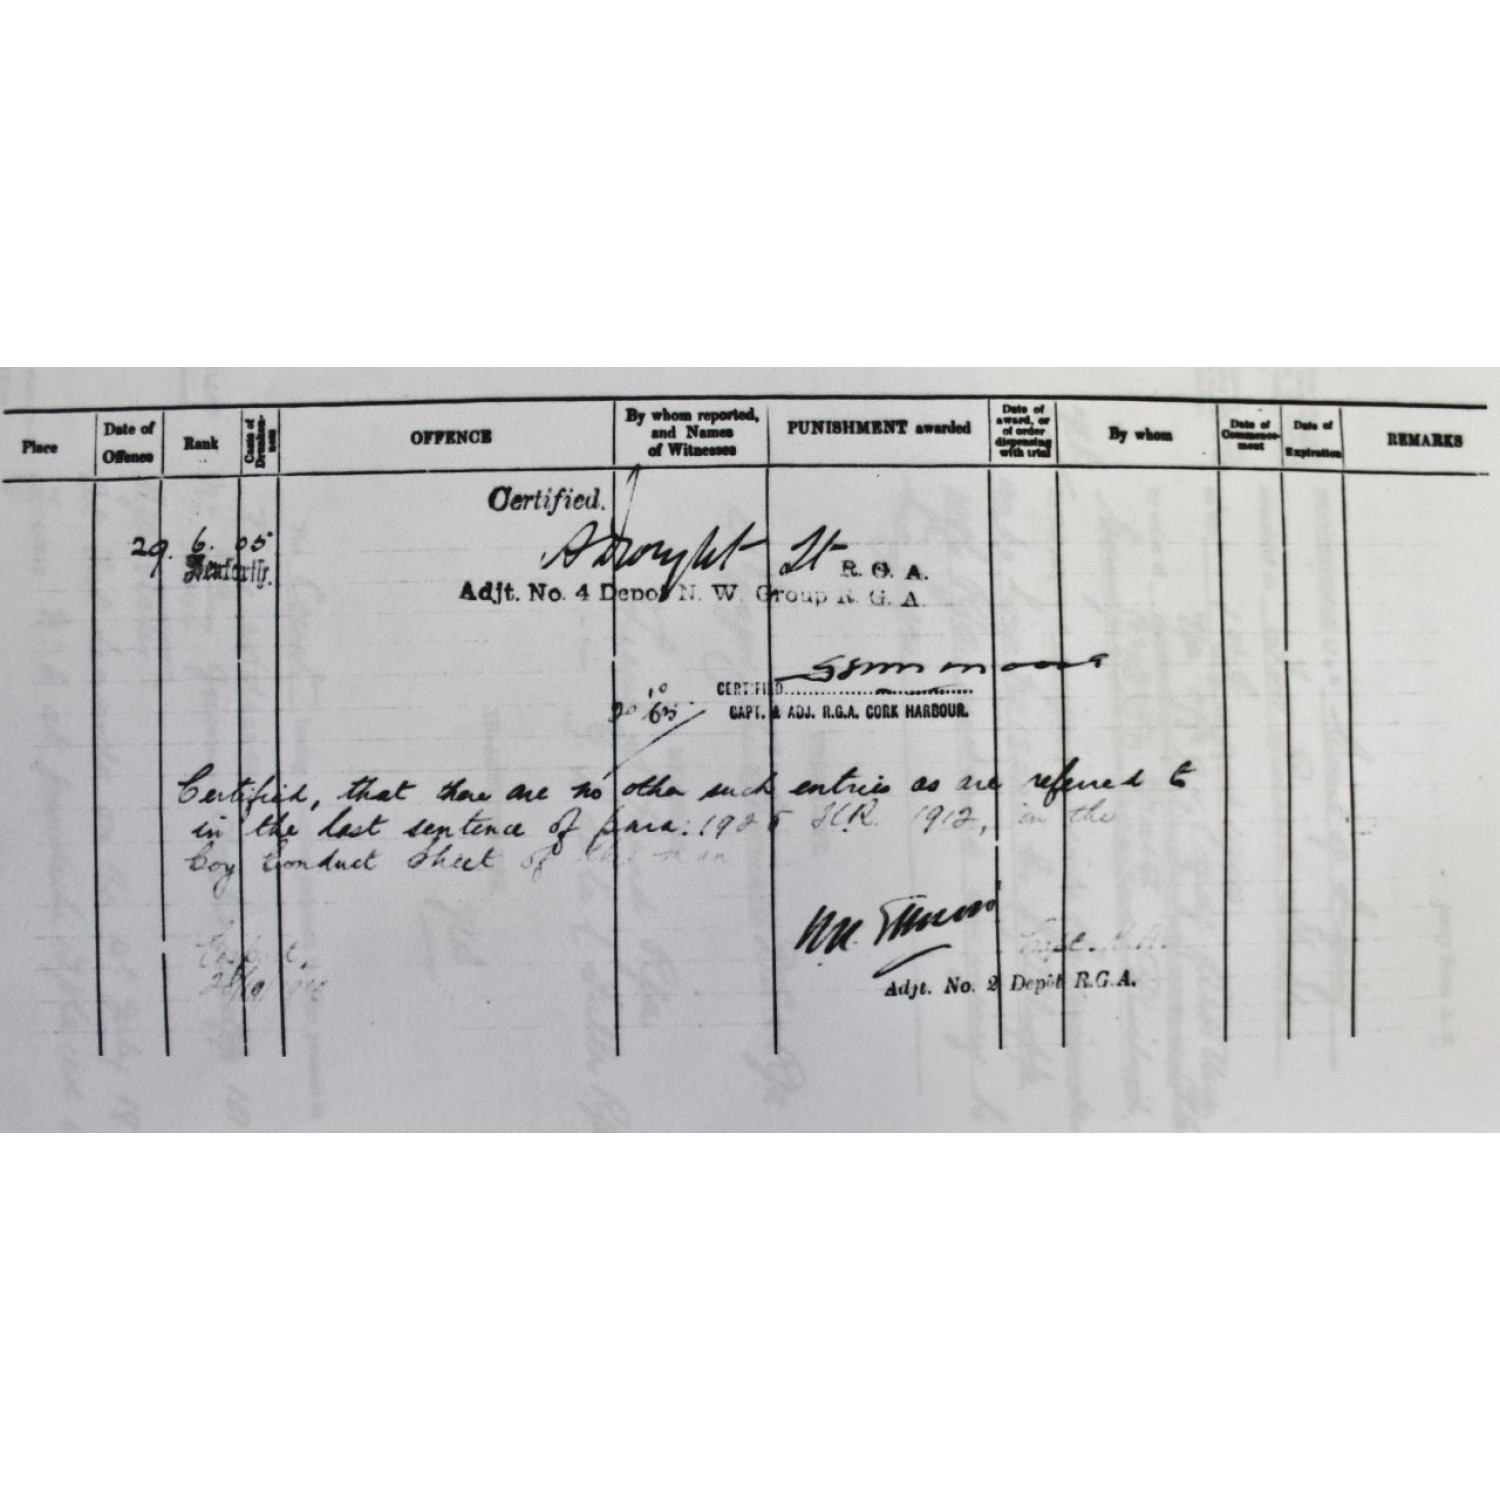 Place Date of Offence Rank Cases of Drunkenness OFFENCE By whom reported, and Names of Witnesses PUNISHMENT awarded Date of award, or of order dispensing with trial By whom Date of Commencement Date of Expiration REMARKS
Certified.
29. 6. 05
Lt R. G. A.
Seaforth.
Adjt. No. 4 Depot N. W. Group R. G. A.
CERTIFIED
CAPT. & ADJ. R.G.A. CORK HARBOUR.
Certified, that there are no other such entries as are referred to
in the last sentence of para: 1912, in the
Coy Conduct Sheet of this man
Capt. R.G.A.
Gosport,
Adjt. No. 2 Depôt R.G.A.